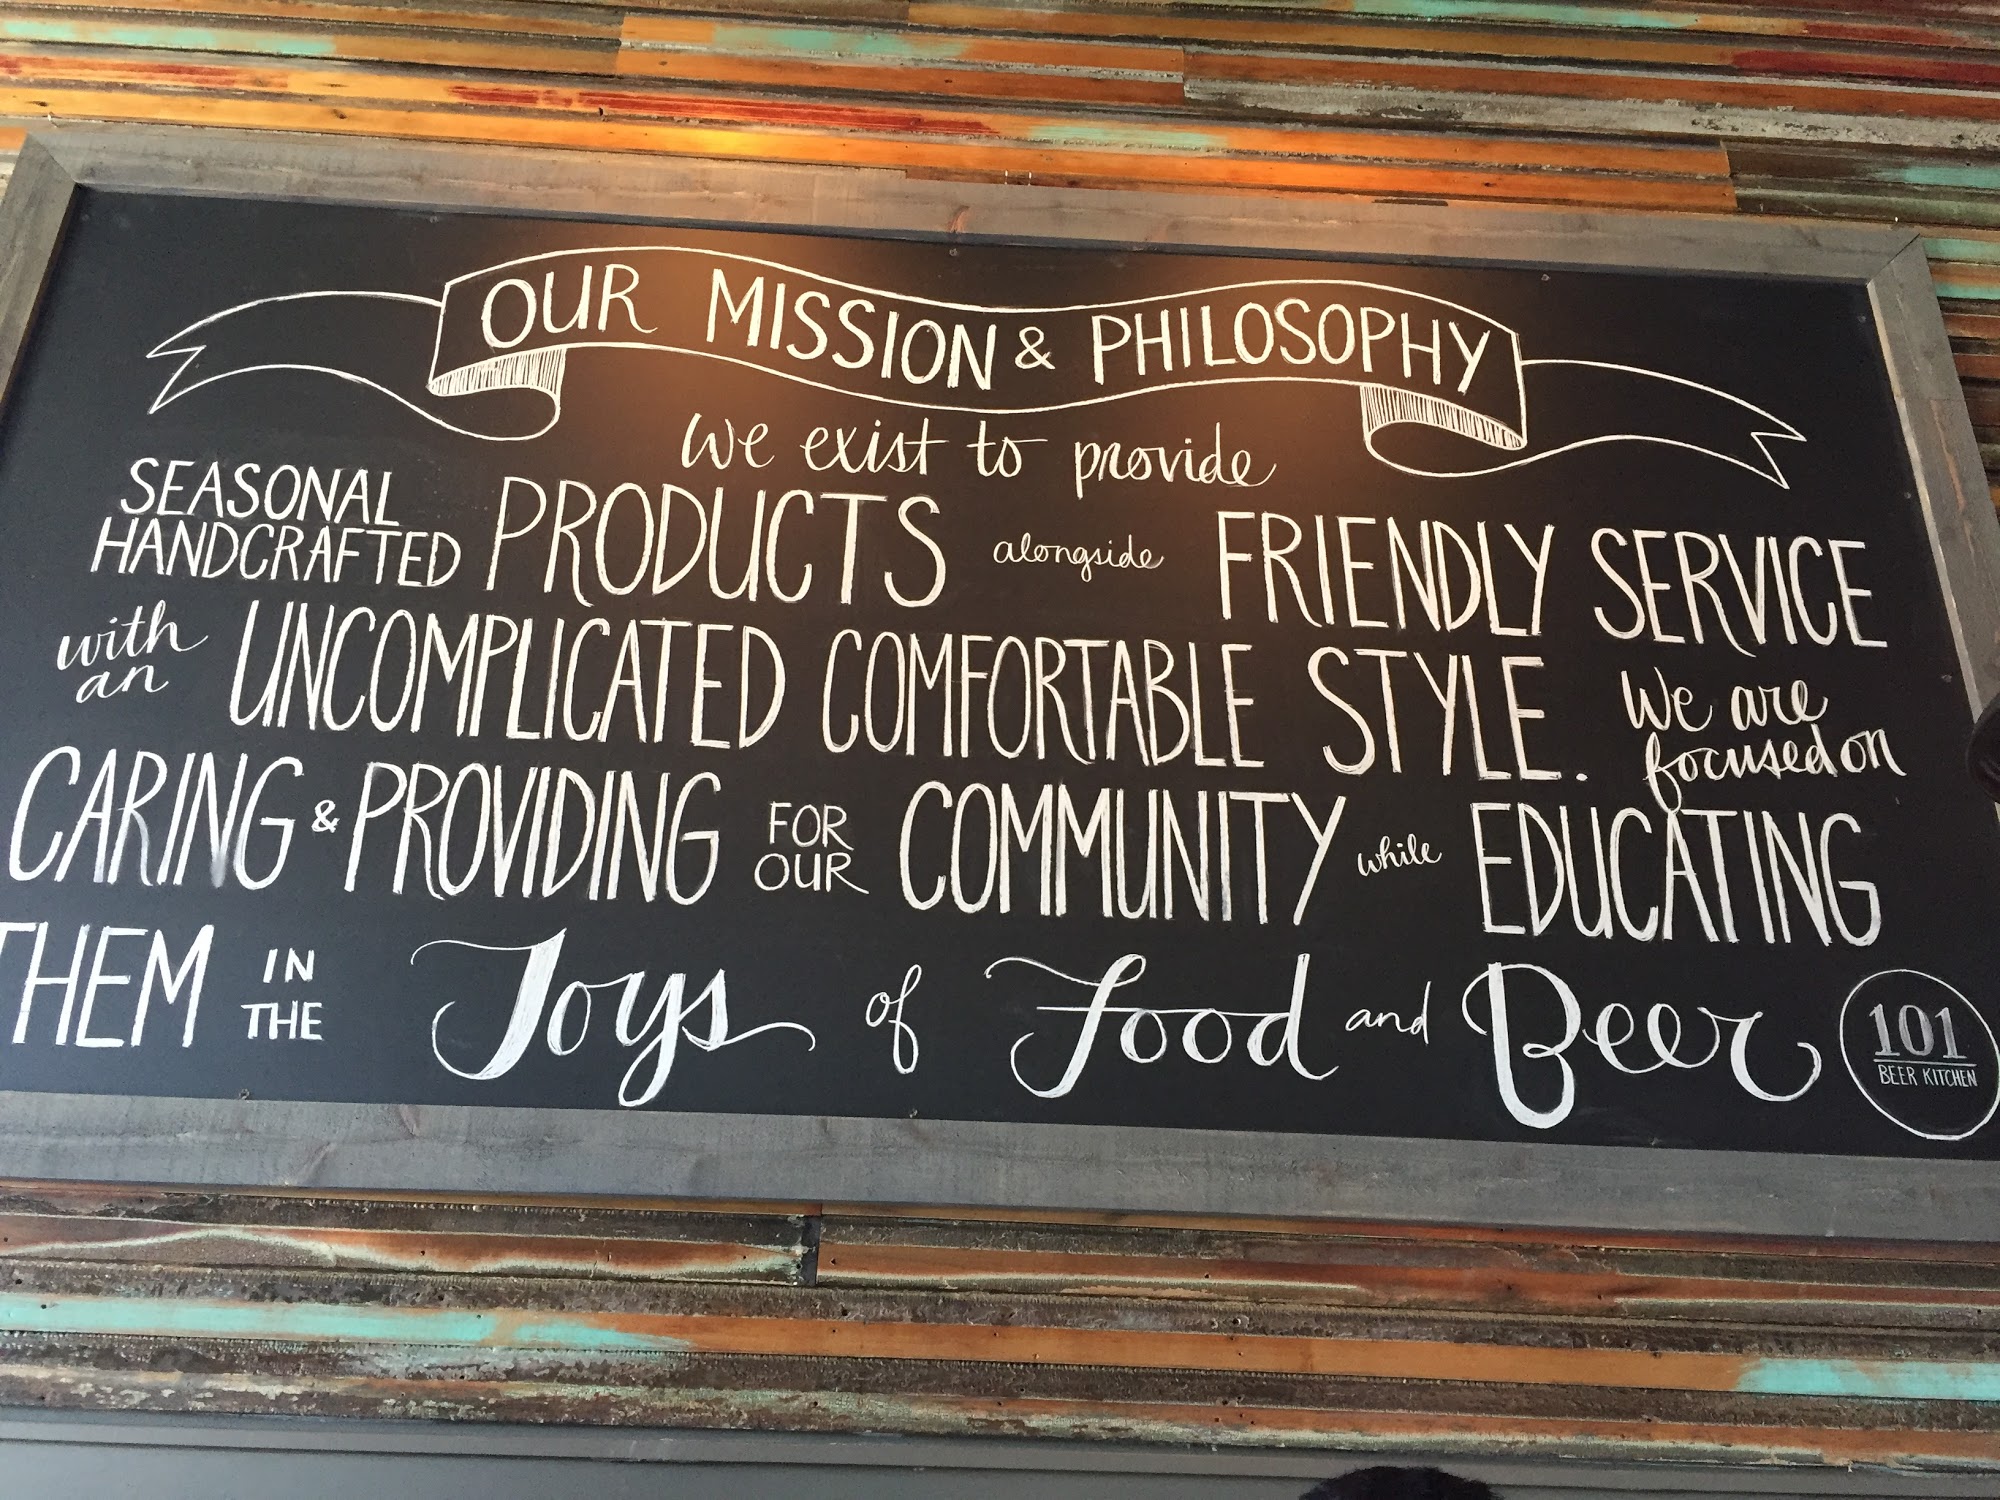 OUR MISSION & PHILOSOPHY
we exist to provide
SEASONAL
HANDCRAFTED PRODUCTS alongside FRIENDLY SERVICE
with
an UNCOMPLICATED COMFORTABLE STYLE. We are
focused on
CARING & PROVIDING FOR
OUR COMMUNITY while EDUCATING
THEM IN
THE Joys of Food and Beer
101
BEER KITCHEN